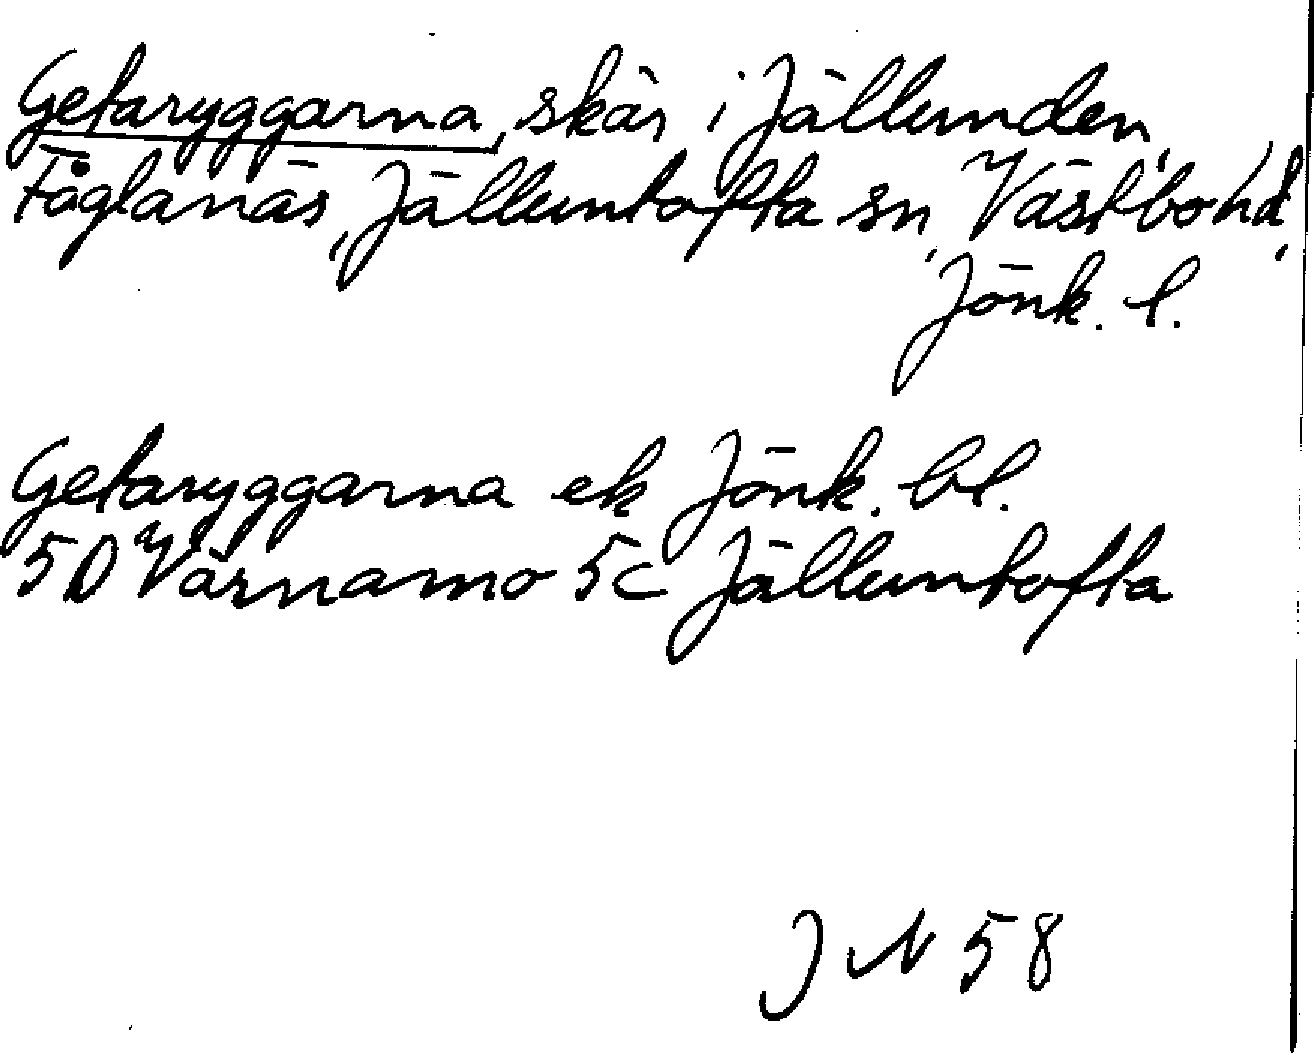 Getaryggarna, skär i Jällunden,
Fåglanäs, Jälluntofta sn, Västbo hd,
Jönk. l.
Getaryggarna ek Jönk. bl.
5D Värnamo 5c Jälluntofta
J N 58